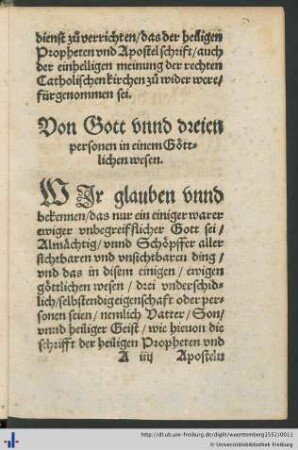 dienst zů verrichten/das der heiligen
Propheten vnd Apostel schrifft/auch
der einhelligen meinung der rechten
Catholischen kirchen zů wider were/
fürgenommen sei.
Von Gott vnnd dreien
personen in einem Gött-
lichen wesen.
WIr glauben vnnd
bekennen/das nur ein einiger warer
ewiger vnbegreifflicher Gott sei/
Almächtig/vnnd Schöpffer aller
sichtbaren vnd vnsichtbaren ding/
vnd das in disem einigen/ewigen
göttlichen wesen/drei vnderschid-
lich/selbstendig eigenschafft oder per-
sonen seien/nemlich Vatter/Son/
vnnd heiliger Geist/wie hieuon die
schrifft der heiligen Propheten vnd
A iiij Aposteln
http://dl.ub.uni-freiburg.de/diglit/wuerttemberg1552/0011
© Universitätsbibliothek Freiburg